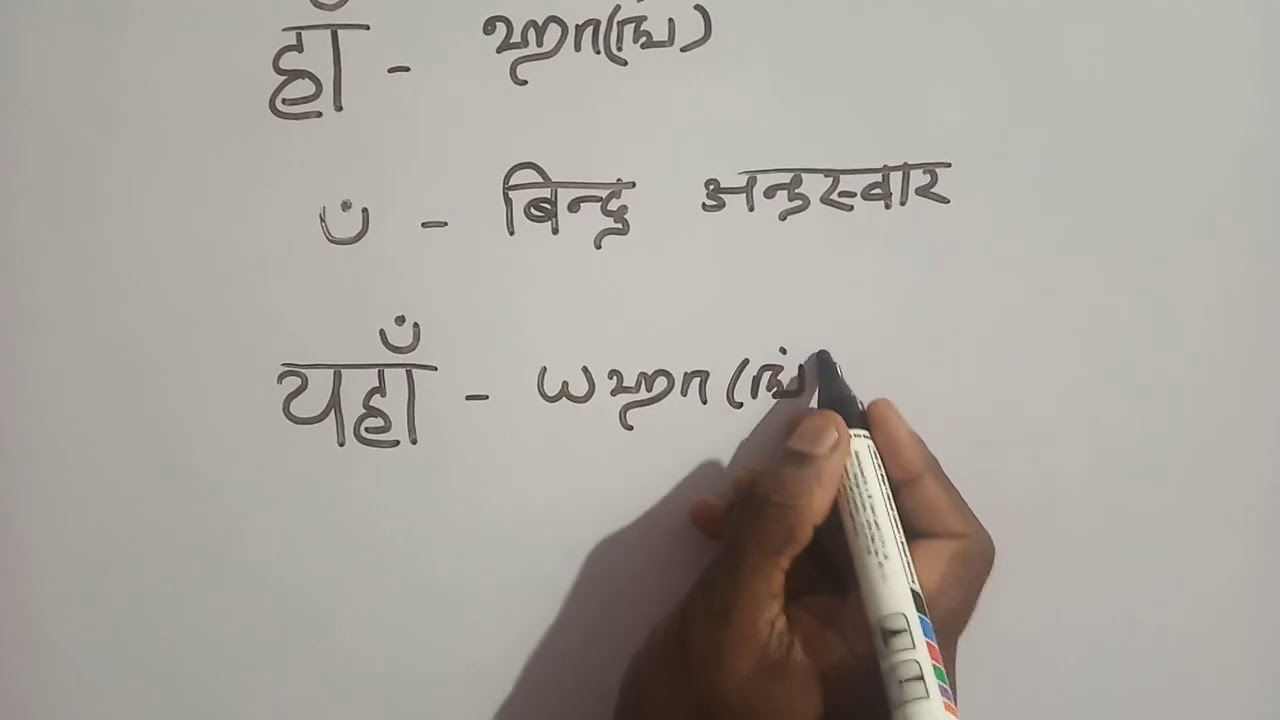 हाँ - ஹா(ங்)
ँ - बिन्दु अनुस्वार
यहाँ - யஹா (ங்